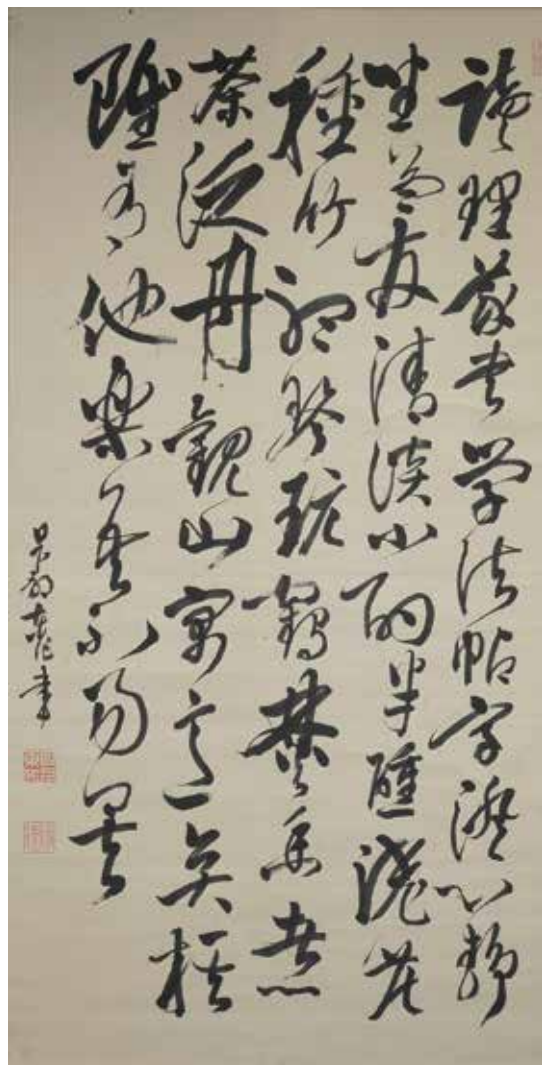 讀理義書學法帖字澄心靜
坐益友清談小酌半醺澆花
種竹聽琴玩鶴焚香煮
茶泛舟觀山寓意奕棋
雖有他樂吾不易矣
吳郡書